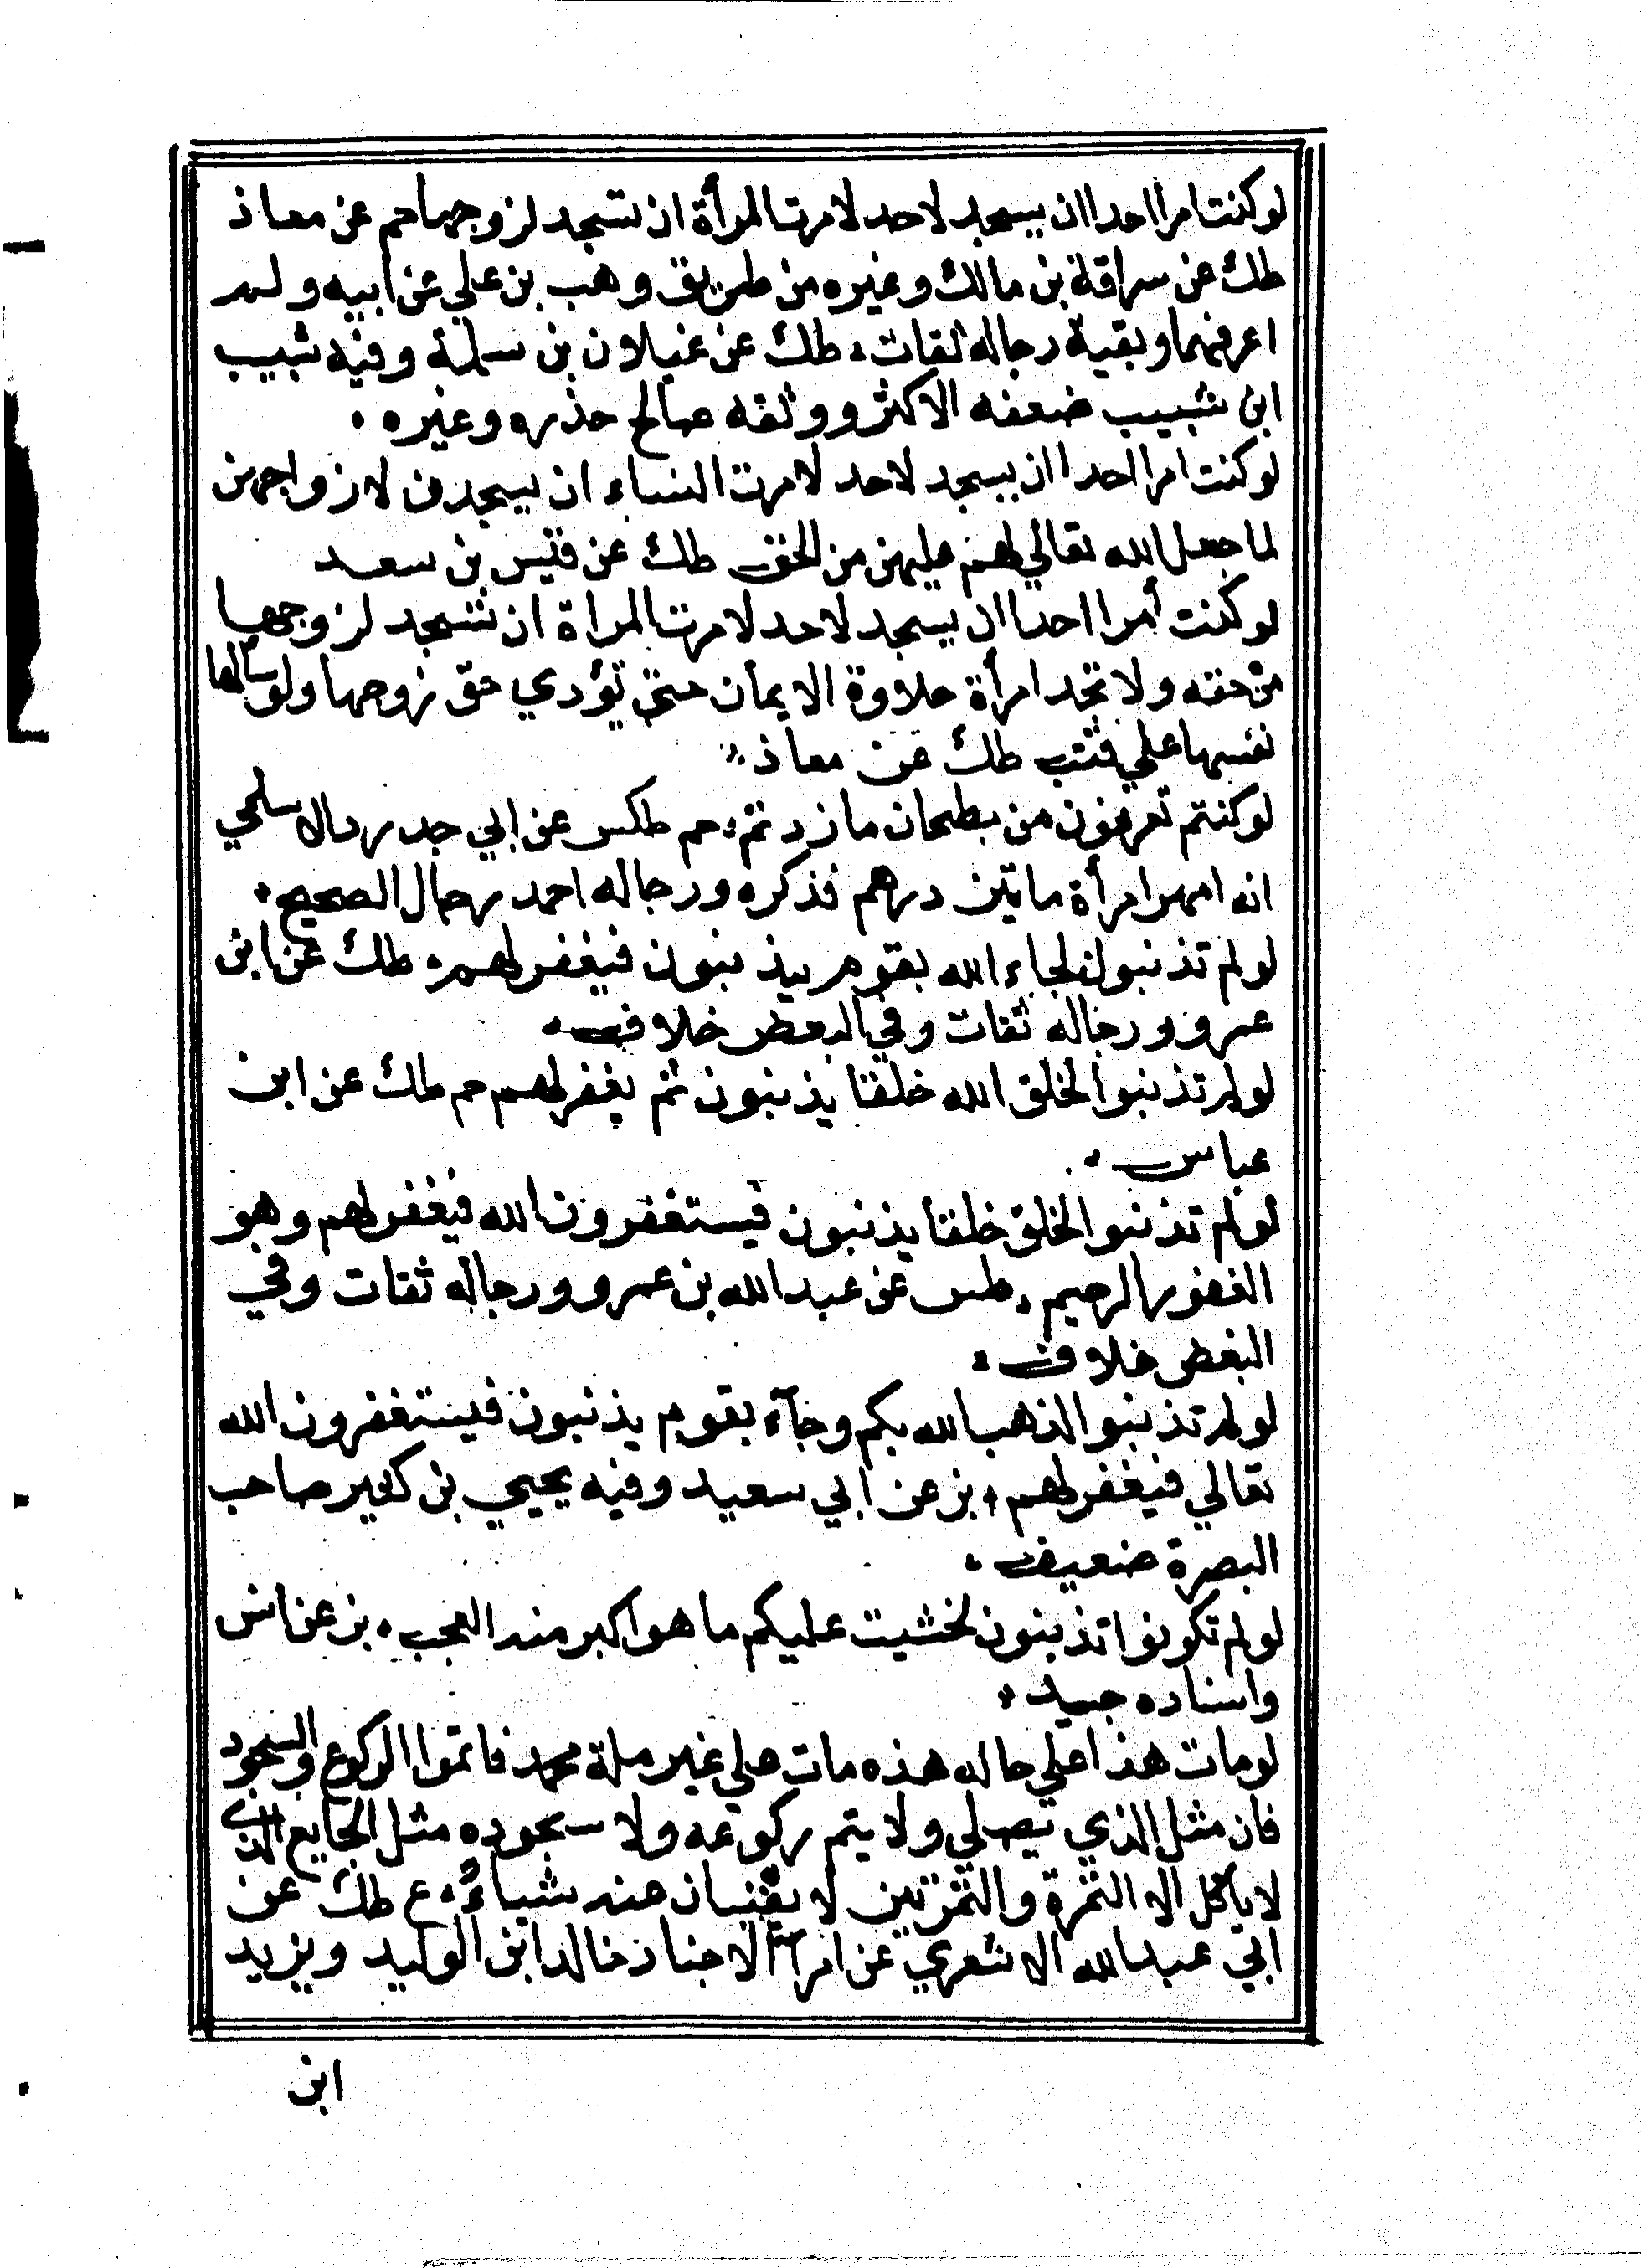 لو كنت امرا احدا ان يسجد لاحد لامرت المرأة ان تسجد لزوجها حم عن معاذ
طك عن سراقة بن مالك وغيره من طريق وهب بن علي عن ابيه ولم
اعرفهما وبقية رجاله ثقات، طك عن غيلان بن سلمة وفيه شبيب
ابن شبيب ضعفه الاكثر ووثقه صالح حذره وغيره ،
لو كنت امرا احدا ان يسجد لاحد لامرت النساء ان يسجدن لازواجهن
لما جعل الله تعالي لهم عليهن من الحق طك عن قيس بن سعد
لو كنت أمرا احدا ان يسجد لاحد لامرت المراة ان تسجد لزوجها
من حقه ولا تجد امرأة حلاوة الايمان حتي تؤدي حق زوجها ولو سالها
نفسها علي قتب طك عن معاذ
لو كنتم تعرفون من بطحان ما زدتم، حم طكس عن ابي حدرد الاسلمي
انه امهر امرأة ماتين درهم فذكره ورجاله احمد رجال الصحيح،
لو لم تذنبون لجاء الله بقوم يذنبون فيغفر لهم، طك عن ابن
عمرو ورجاله ثقات وفي البعض خلاف،
لو لم تذنبوا لخلق الله خلقا يذنبون ثم يغفر لهم حم طك عن ابن
عباس،
لو لم تذنبوا لخلق خلقا يذنبون فيستغفرون الله فيغفر لهم وهو
الغفور الرحيم، طس عن عبد الله بن عمرو ورجاله ثقات وفي
البعض خلاف،
لو لم تذنبوا لذهب الله بكم وجآء بقوم يذنبون فيستغفرون الله
تعالي فيغفر لهم، بز عن ابي سعيد وفيه يحيي بن كثير صاحب
البصرة ضعيف،
لو لم تكونوا تذنبون لخشيت عليكم ما هو اكبر منه العجب، بز عن انس
واسناده جيد،
لو مات هذا علي حاله هذه مات علي غير ملة محمد فاتموا الركوع والسجود
فان مثل الذي يصلي ولا يتم ركوعه ولا سجوده مثل الجايع الذي
لا ياكل الا التمرة والتمرتين لا يغنيان عنه شياء، ع طك عن
ابي عبد الله الاشعري عن امرآ الاجناد خالد ابن الوليد ويزيد
ابن